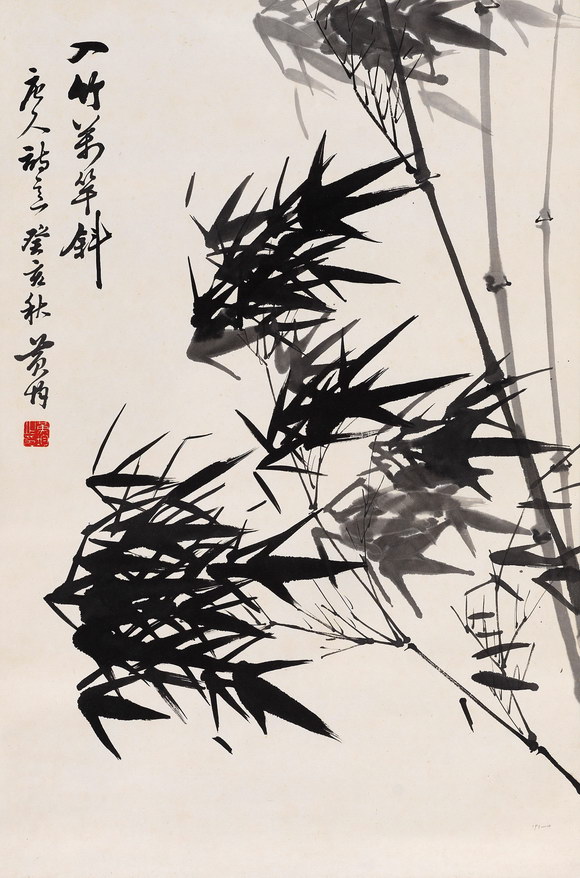 入竹萬竿斜
唐人詩意 癸亥秋 黄均